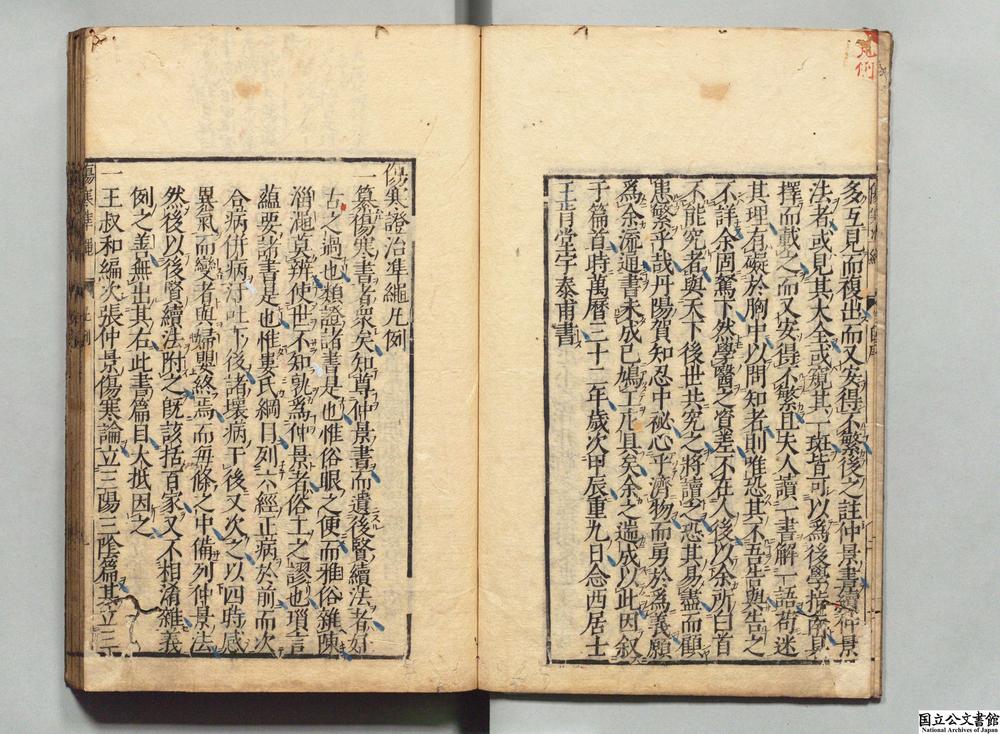 凡例
多互見而複出而又安得不繁後之註仲景書續仲景
法者或見其大全或窺其一斑皆可以爲後學指南具
擇而載之而又安得不繁且夫人讀一書解一語苟迷
其理有礙於胸中以問知者則唯恐其不吾告與告之
不詳余固駑下然學醫之資差不在人後以余所日首
不能究者與天下後世共究之將讀之恐其易盡而顧
患繁乎哉丹陽賀知忍中祕心乎濟物而勇於爲義願
爲余流通書未成已鳩工庀具矣余之遄成以此因敘
于篇首時萬曆三十二年歲次甲辰重九日念西居士
王肯堂宇泰甫書
傷寒證治準繩凡例
一纂傷寒書者衆矣知尊仲景書而遺後賢續法者好
古之過也類證諸書是也惟俗眼之便而雅俗雜陳
淄澠莫辨使世不知孰爲仲景者俗工之謬也瑣言
蘊要諸書是也惟婁氏綱目列六經正病於前而次
合病併病汗吐下後諸壞病于後又次之以四時感
異氣而變者與婦嬰終焉而每條之中備列仲景法
然後以後賢續法附之旣該括百家又不相淆雜義
例之善無出其右此書篇目大抵因之
一王叔和編次張仲景傷寒論立三陽三陰篇其立三
国立公文書館
National Archives of Japan